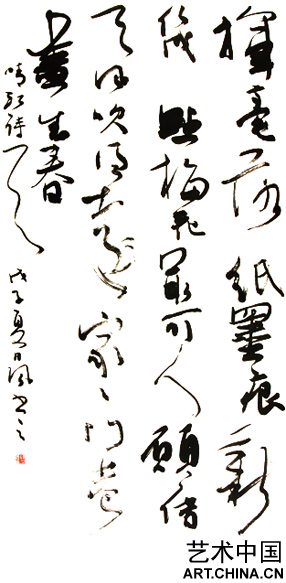 揮毫落紙墨痕新
幾點梅花最可人願借
天風吹得遠家々門巷
盡生春
晴江詩一首
戊子夏日風書之
艺术中国
ART.CHINA.CN